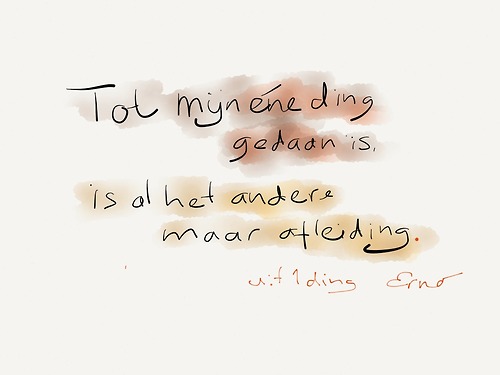 Tot mijn éne ding
gedaan is,
is al het andere
maar afleiding.
uit 1 ding Erno